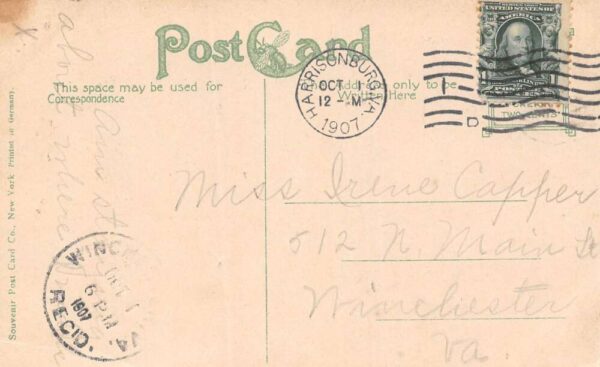 Post Card
This space may be used for
Correspondence
Address only to be
Written Here
HARRISONBURG, VA.
OCT 1
12-M
1907
UNITED STATES OF
AMERICA
TWO CENTS
D
Miss Irene Capper
512 N. Main St
Winchester
Va.
WINC
OCT 1
6 PM
1907
REC'D.
Souvenir Post Card Co., New York Printed in Germany.
X
about where